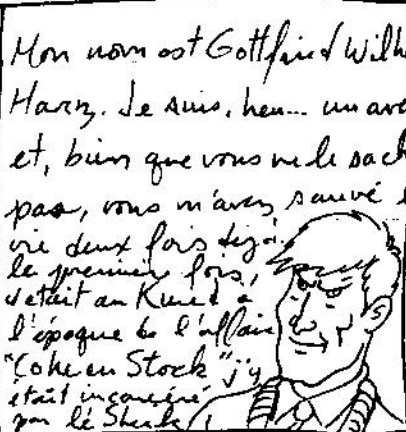 Mon nom est Gottfried Wilh
Harz. Je suis, heu... un ave
et, bien que vous ne le sach
pas, vous m'avez sauvé
vie deux fois déjà.
la première fois,
c'était au
l'époque de l'affaire
"Coke en Stock" j'y
était incarcéré
par le Sheik